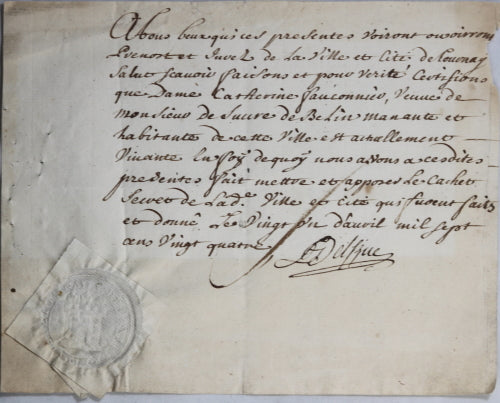 A tous ceux qui ces presentes voiront ou oiront
Prevost et Jurez de la Ville et Cité de Tournay
Salut scavoir faisons et pour verité Certifions
que Dame Catherine fauconnier, Veuve de
monsieur de Sucre de Belin manante et
habitante de cette Ville est actuellement
Vivante En foy dequoy nous avons a cesdites
presentes fait mettre et apposer Le Cachet
Secret de Lad.e Ville et cité qui furent faites
et donné Le Vingt un d'avril mil sept
cens Vingt quatre